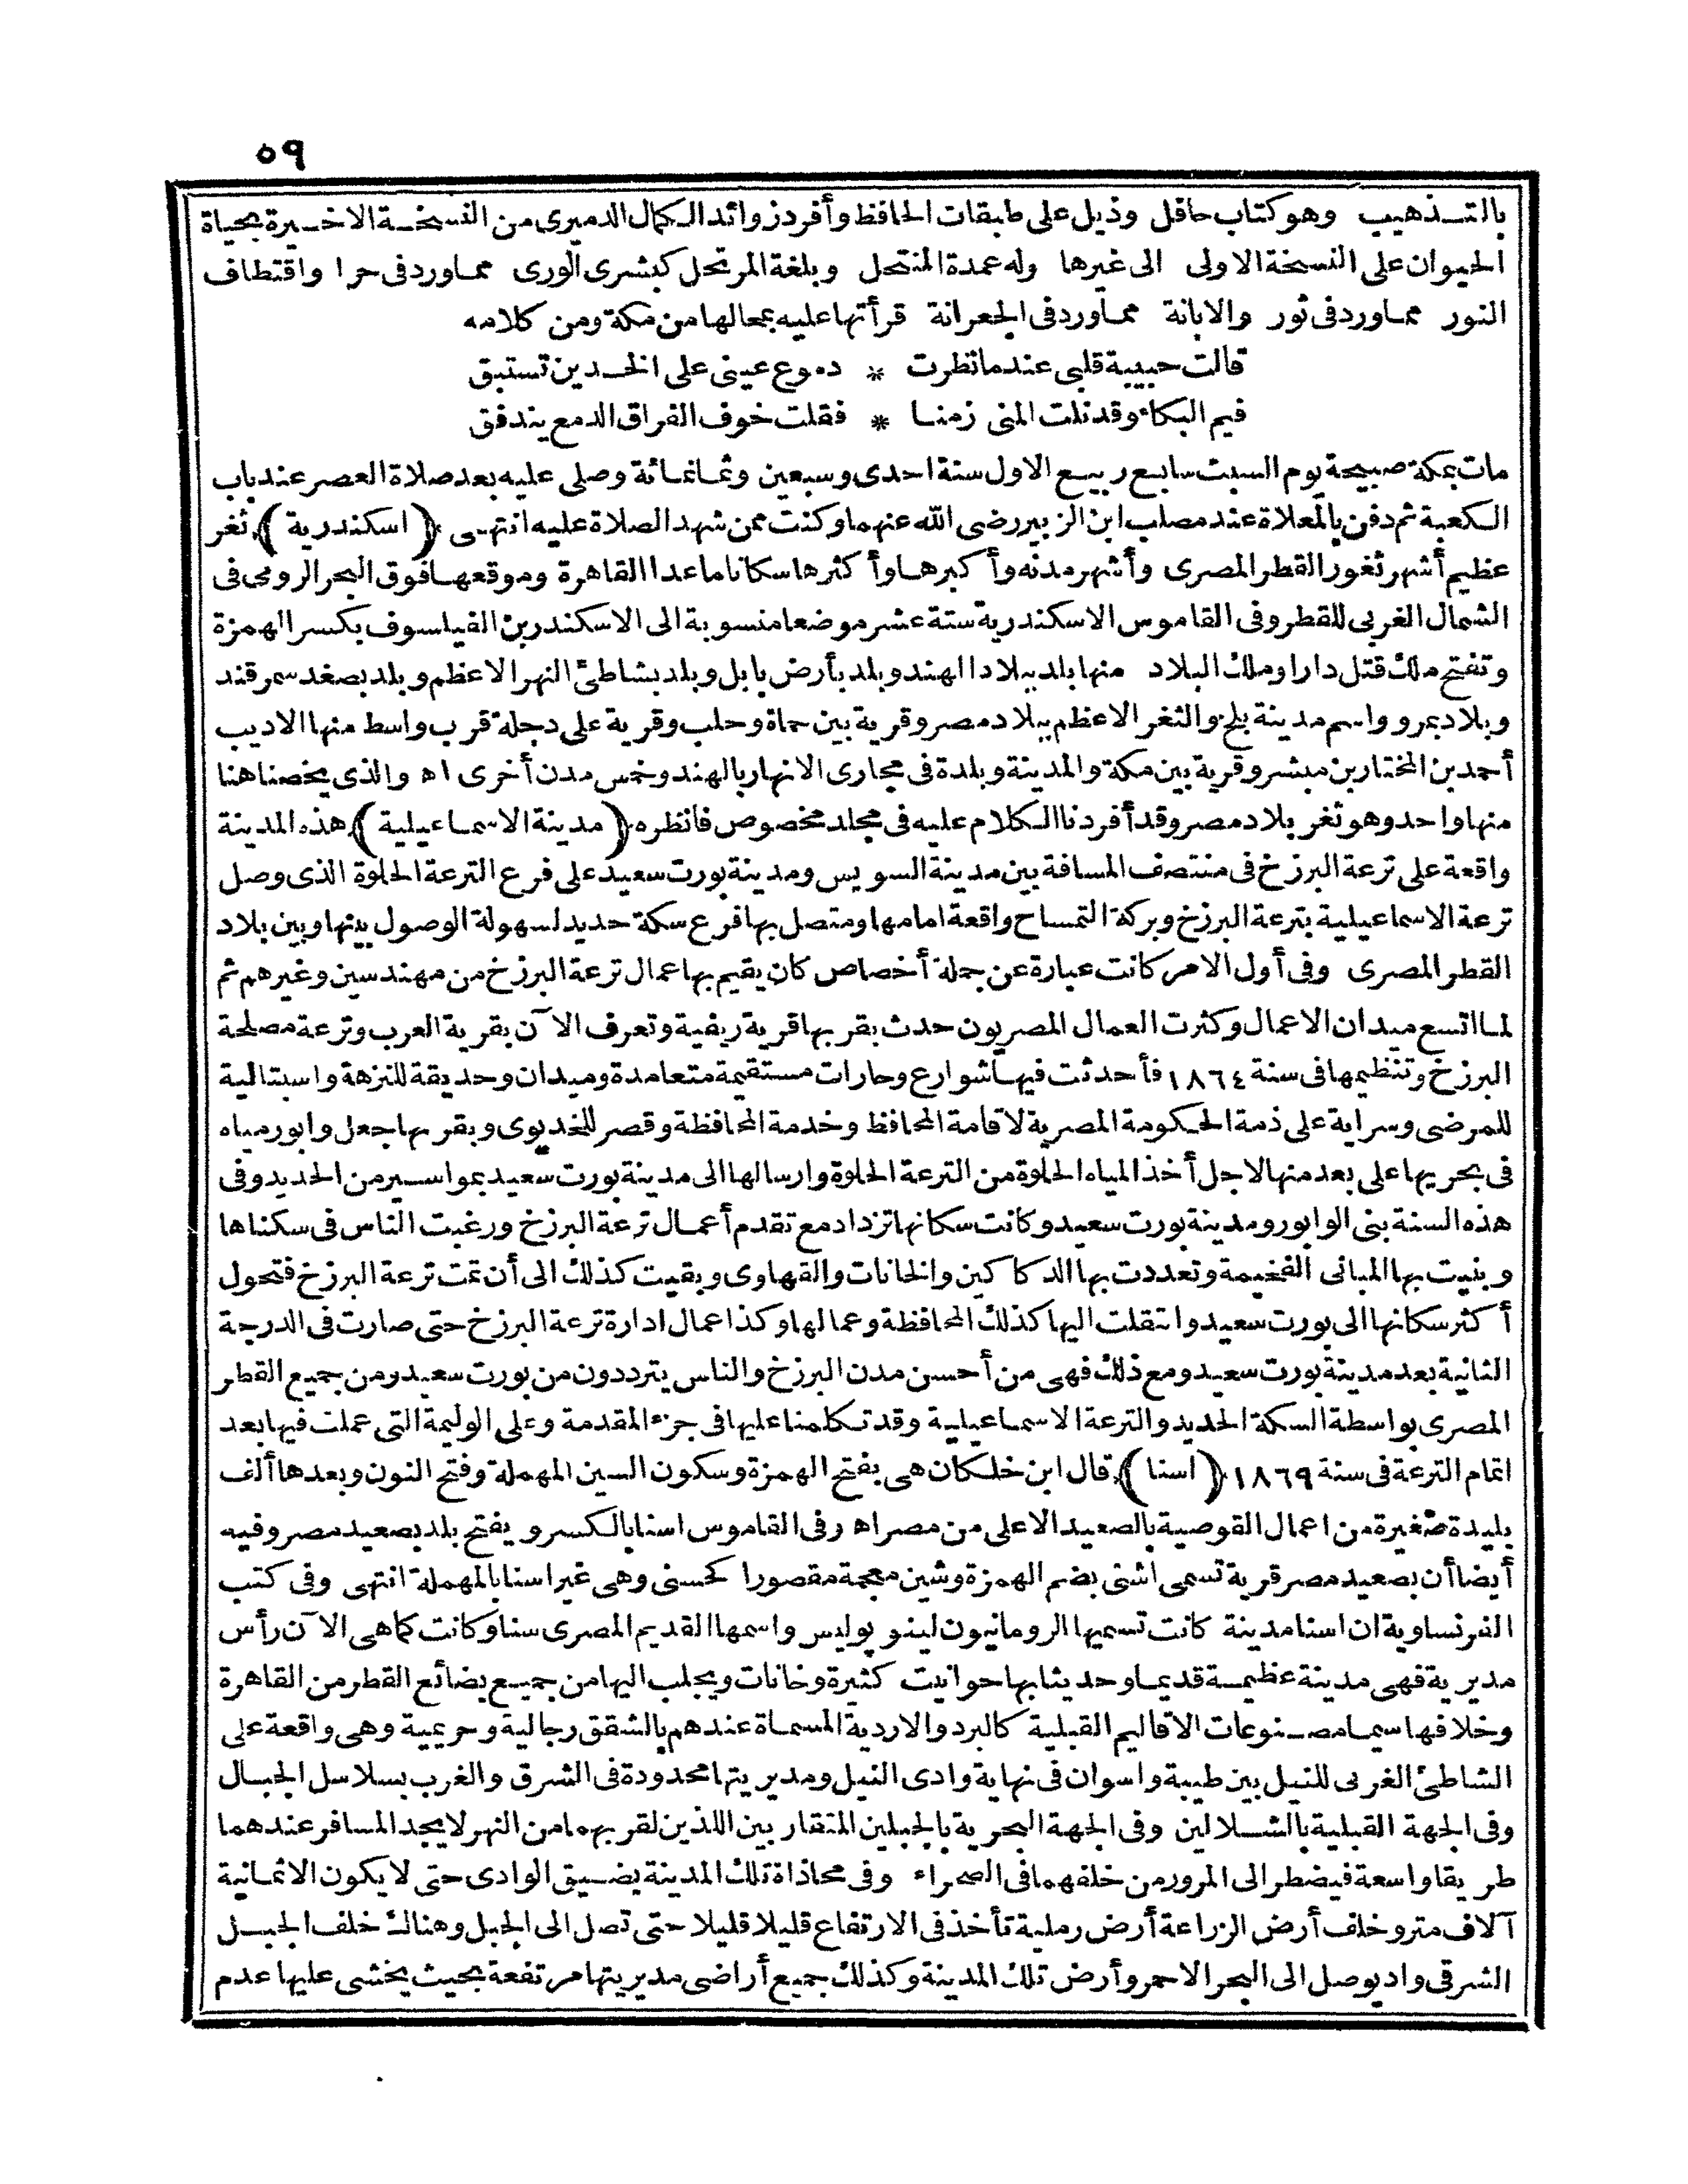 ٥٩
بالتذهيب وهو كتاب حافل وذيل على طبقات الحافظ وأفرد زوائد الكمال الدميرى من النسخة الاخيرة بحياة
الحيوان على النسخة الاولى الى غيرها وله عمدة المنتحل وبلغة المرتحل كبشرى الورى مما ورد فى حرا واقتطاف
النور مما ورد فى ثور والابانة مما ورد فى الجعرانة قرأتها عليه بمحالها من مكة ومن كلامه
قالت حبيبة قلبى عندما نظرت * دموع عينى على الخدين تستبق
فيم البكاء وقد نلت المنى زمنا * فقلت خوف الفراق الدمع يندفق
مات بمكة صبيحة يوم السبت سابع ربيع الاول سنة احدى وسبعين وثمانمائة وصلى عليه بعد صلاة العصر عند باب
الكعبة ثم دفن بالمعلاة عند مصلب ابن الزبير رضى الله عنهما وكنت ممن شهد الصلاة عليه انتهى (اسكندرية) ثغر
عظيم أشهر ثغور القطر المصرى وأشهر مدنه وأكبرها وأكثرها سكانا ما عدا القاهرة وموقعها فوق البحر الرومى فى
الشمال الغربى للقطر وفى القاموس الاسكندرية ستة عشر موضعا منسوبة الى الاسكندر بن الفيلسوف بكسر الهمزة
وتفتح ملك قتل دارا وملك البلاد منها بلد ببلاد الهند وبلد بأرض بابل وبلد بشاطئ النهر الاعظم وبلد بصغد سمرقند
وبلاد بمرو واسم مدينة بلخ والثغر الاعظم ببلاد مصر وقرية بين حماة وحلب وقرية على دجلة قرب واسط منها الاديب
أحمد بن المختار بن مبشر وقرية بين مكة والمدينة وبلدة فى مجارى الانهار بالهند وخمس مدن أخرى اه والذى يخصنا هنا
منها واحد وهو ثغر بلاد مصر وقد أفردنا الكلام عليه فى مجلد مخصوص فانظره (مدينة الاسماعيلية) هذه المدينة
واقعة على ترعة البرزخ فى منتصف المسافة بين مدينة السويس ومدينة بورت سعيد على فرع الترعة الحلوة الذى وصل
ترعة الاسماعيلية بترعة البرزخ وبركة التمساح واقعة امامها ومتصل بها فرع سكة حديد لسهولة الوصول بينها وبين بلاد
القطر المصرى وفى أول الامر كانت عبارة عن جملة أخصاص كان يقيم بها عمال ترعة البرزخ من مهندسين وغيرهم ثم
لما اتسع ميدان الاعمال وكثرت العمال المصريون حدث بقربها قرية ريفية وتعرف الآن بقرية العرب وترعة مصلحة
البرزخ وتنظيمها فى سنة ١٨٦٤ فأحدثت فيها شوارع وحارات مستقيمة متعامدة وميدان وحديقة للنزهة واسبتالية
للمرضى وسراية على ذمة الحكومة المصرية لاقامة المحافظ وخدمة المحافظة وقصر للخديوى وبقربها جعل وابور مياه
فى بحريها على بعد منها لاجل أخذ المياه الحلوة من الترعة الحلوة وارسالها الى مدينة بورت سعيد بمواسير من الحديد وفى
هذه السنة بنى الوابور ومدينة بورت سعيد وكانت سكانها تزداد مع تقدم أعمال ترعة البرزخ ورغبت الناس فى سكناها
وبنيت بها المبانى الفخيمة وتعددت بها الدكاكين والخانات والقهاوى وبقيت كذلك الى أن تمت ترعة البرزخ فتحول
أكثر سكانها الى بورت سعيد وانتقلت اليها كذلك المحافظة وعمالها وكذا عمال ادارة ترعة البرزخ حتى صارت فى الدرجة
الثانية بعد مدينة بورت سعيد ومع ذلك فهى من أحسن مدن البرزخ والناس يترددون من بورت سعيد ومن جميع القطر
المصرى بواسطة السكة الحديد والترعة الاسماعيلية وقد تكلمنا عليها فى جزء المقدمة وعلى الوليمة التى عملت فيها بعد
اتمام الترعة فى سنة ١٨٦٩ (اسنا) قال ابن خلكان هى بفتح الهمزة وسكون السين المهملة وفتح النون وبعدها ألف
بليدة صغيرة من اعمال القوصية بالصعيد الاعلى من مصر اه وفى القاموس اسنا بالكسر ويفتح بلد بصعيد مصر وفيه
أيضا أن بصعيد مصر قرية تسمى اشنى بضم الهمزة وشين معجمة مقصورا كحسنى وهى غير اسنا بالمهملة انتهى وفى كتب
الفرنساوية ان اسنا مدينة كانت تسميها الرومانيون لينو بوليس واسمها القديم المصرى سنا وكانت كما هى الآن رأس
مديرية فهى مدينة عظيمة قديما وحديثا بها حوانيت كثيرة وخانات ويجلب اليها من جميع بضائع القطر من القاهرة
وخلافها سيما مصنوعات الاقاليم القبلية كالبرد والاردية المسماة عندهم بالشقق رجالية وحريمية وهى واقعة على
الشاطئ الغربى للنيل بين طيبة واسوان فى نهاية وادى النيل ومديريتها محدودة فى الشرق والغرب بسلاسل الجبال
وفى الجهة القبلية بالشلالين وفى الجهة البحرية بالجبلين المتقاربين اللذين لقربهما من النهر لا يجد المسافر عندهما
طريقا واسعة فيضطر الى المرور من خلفهما فى الصحراء وفى محاذاة تلك المدينة يضيق الوادى حتى لا يكون الا ثمانية
آلاف متر وخلف أرض الزراعة أرض رملية تأخذ فى الارتفاع قليلا قليلا حتى تصل الى الجبل وهناك خلف الجبل
الشرقى واد يوصل الى البحر الاحمر وأرض تلك المدينة وكذلك جميع أراضى مديريتها مرتفعة بحيث يخشى عليها عدم